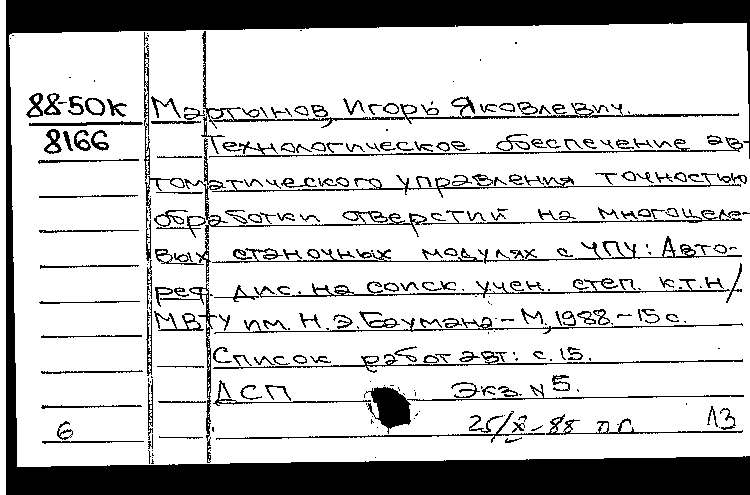 88-50к Мартынов, Игорь Яковлевич.
8166 Технологическое обеспечение ав-
томатического управления точностью
обработки отверстий на многоцеле-
вых станочных модулях с ЧПУ: Авто-
реф. дис. на соиск. учен. степ. к.т.н/
МВТУ им. Н.Э.Баумана-М,1988.-15с.
Список работ авт: с.15.
ДСП Экз N 5.
6 25/X-88 п.г. 13